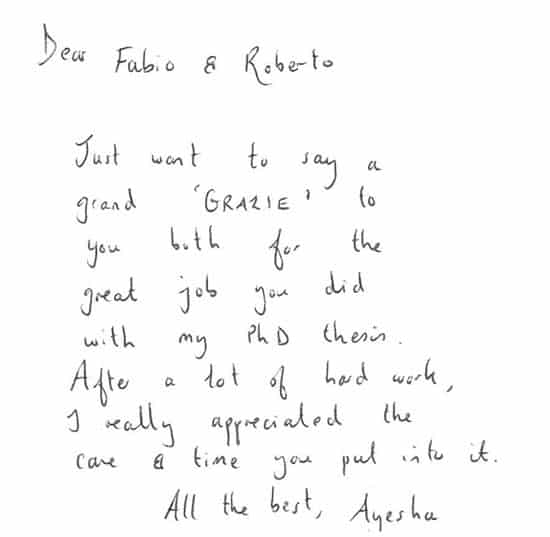 Dear Fabio & Roberto
Just want to say a
grand 'GRAZIE' to
you both for the
great job you did
with my PhD thesis.
After a lot of hard work,
I really appreciated the
care & time you put into it.
All the best, Ayesha